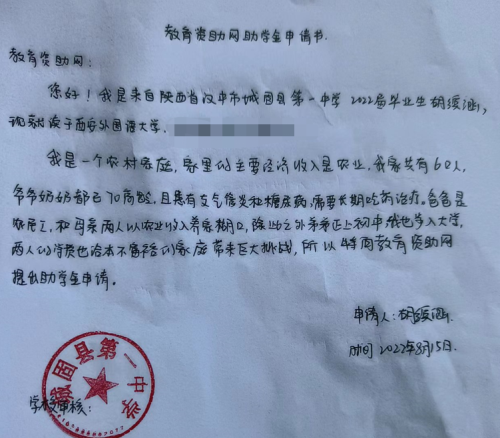 教育资助网助学金申请书.
教育资助网:
您好!我是来自陕西省汉中市城固县第一中学2022届毕业生胡绥涵,
现就读于西安外国语大学,
我是一个农村家庭,家里的主要经济收入是农业,我家共有6口人,
爷爷奶奶都已70高龄,且患有支气管炎和糖尿病,需要长期吃药治疗。爸爸是
农民工,和母亲两人以农业收入养家糊口,除此之外弟弟正上初中,我也步入大学,
两人的学费也给本不富裕的家庭带来巨大挑战,所以特向教育资助网
提出助学金申请。
申请人:胡绥涵.
时间2022年8月15日.
城固县第一中学
学校审核: